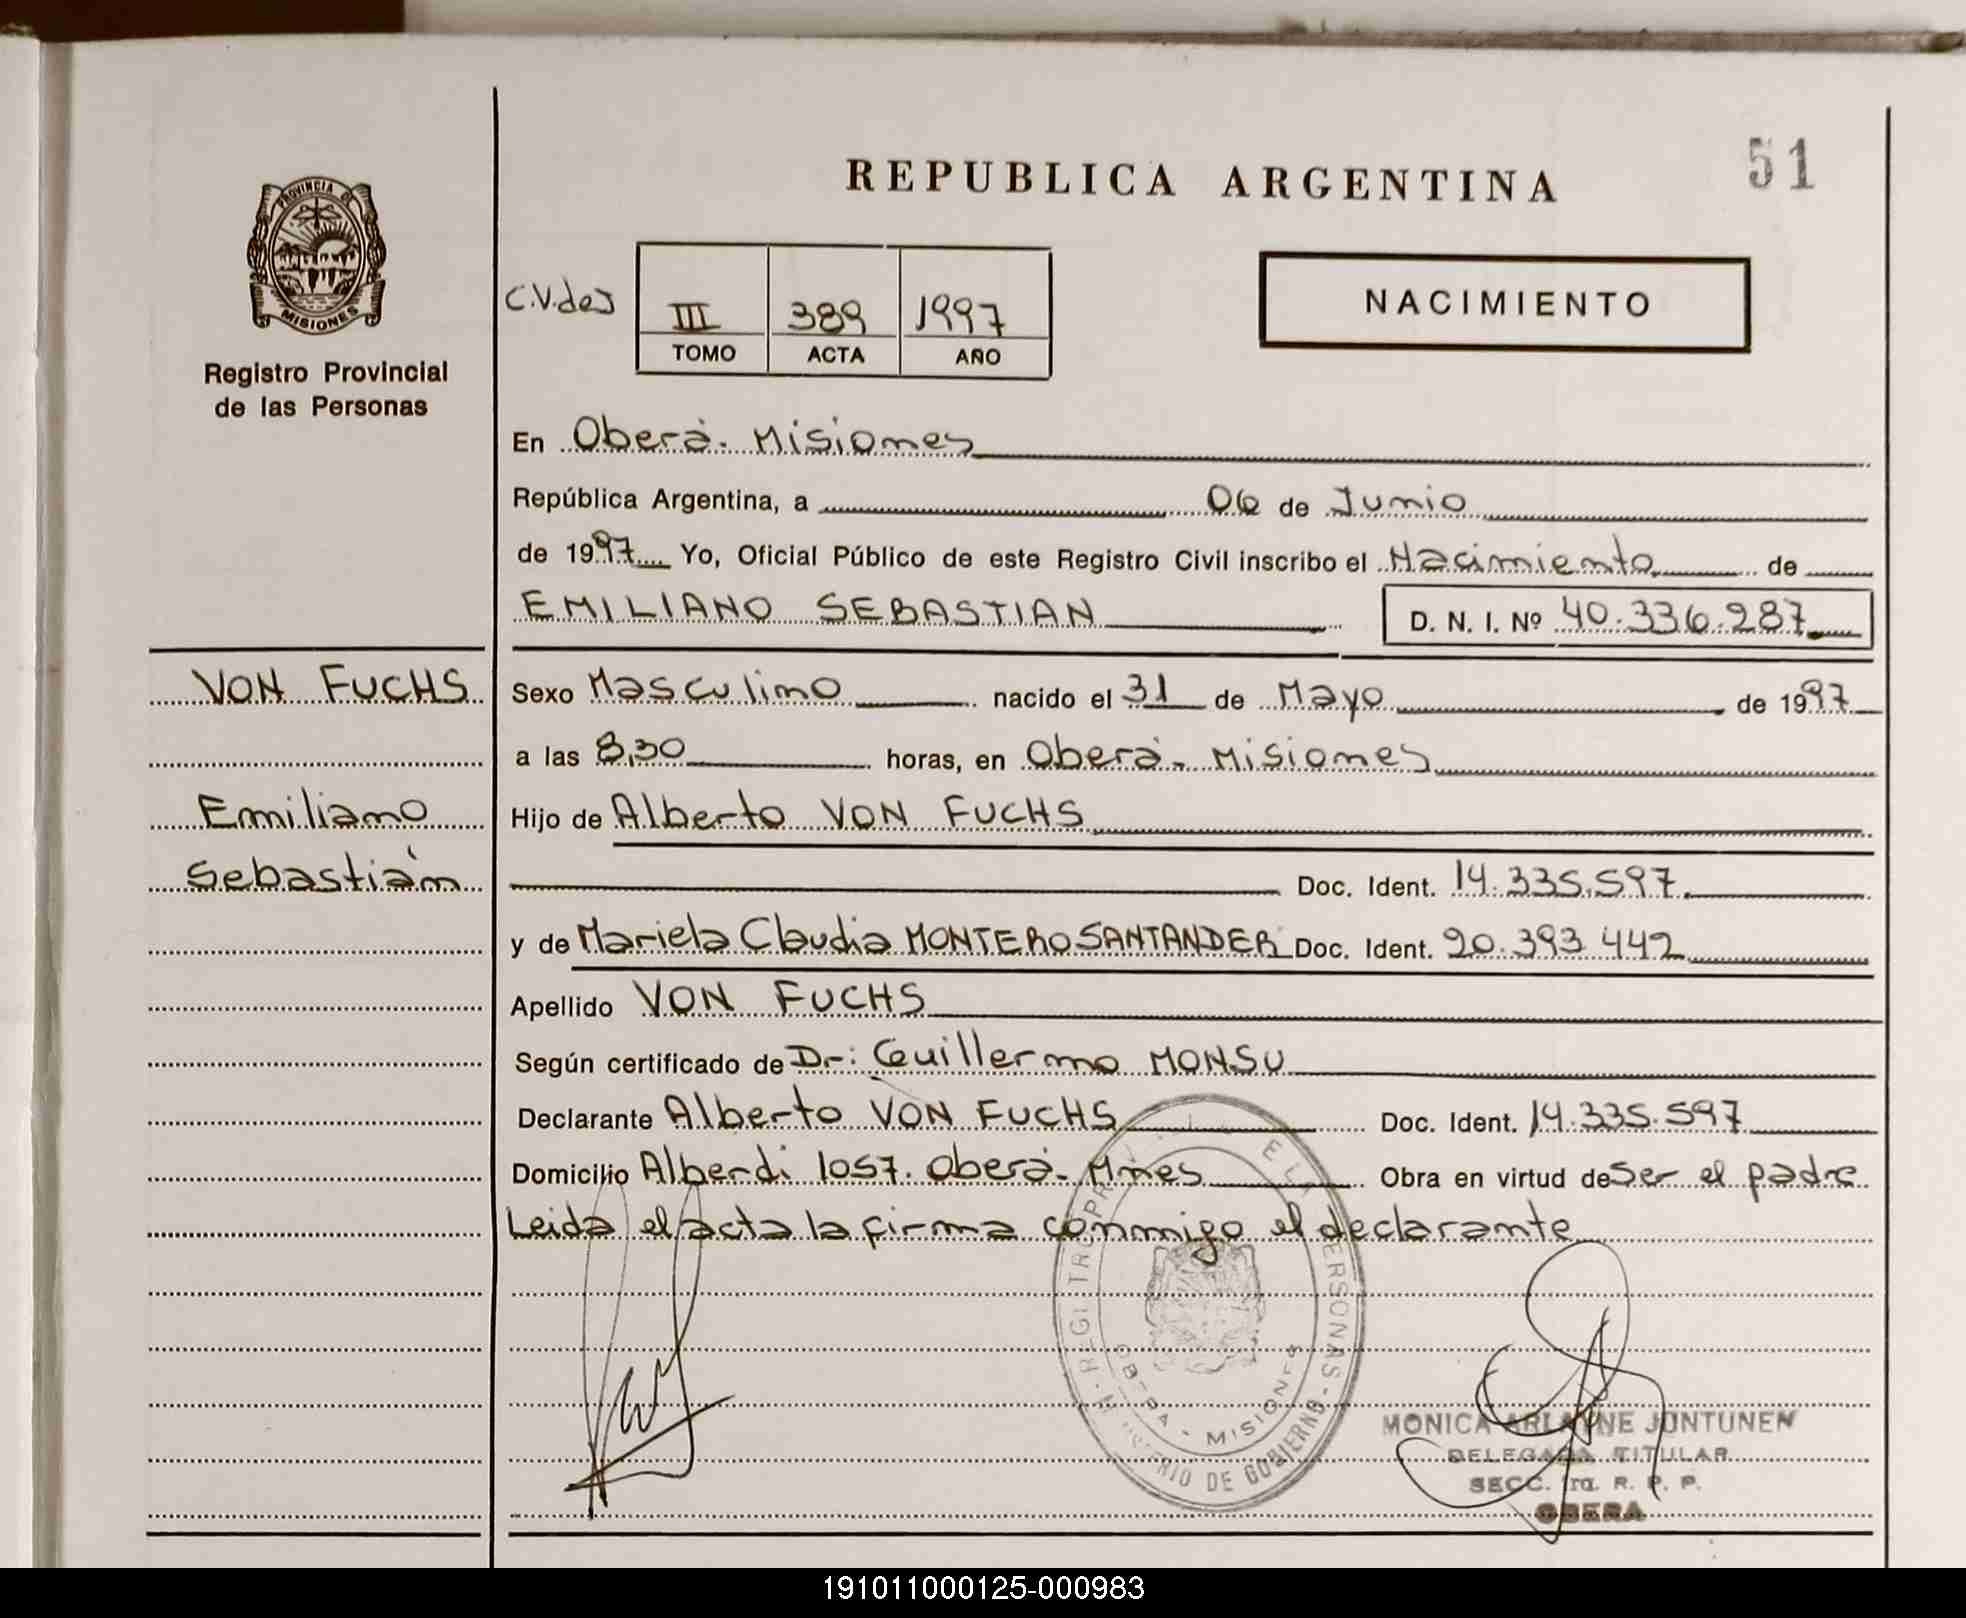 REPUBLICA ARGENTINA
51
PROVINCIA DE
MISIONES
Registro Provincial
de las Personas
C.V.des
III
389
1997
TOMO
ACTA
AÑO
NACIMIENTO
En Oberá - Misiones
República Argentina, a 06 de Junio
de 1997 Yo, Oficial Público de este Registro Civil inscribo el Nacimiento de
EMILIANO SEBASTIAN D. N. I. Nº 40.336.287
VON FUCHS
Emiliano
Sebastián
Sexo Masculino nacido el 31 de Mayo de 1997
a las 8,30 horas, en Oberá - Misiones
Hijo de Alberto VON FUCHS
Doc. Ident. 14.335.597
y de Mariela Claudia MONTERO SANTANDER Doc. Ident. 20.393 442
Apellido VON FUCHS
Según certificado de Dr: Guillermo MONSU
Declarante Alberto VON FUCHS Doc. Ident. 14.335.597
Domicilio Alberdi 1057. Oberá - Mnes Obra en virtud de Ser el padre
Leida el acta la firma conmigo el declarante
MINISTERIO DE GOBIERNO - OBERA - MISIONES
MONICA ARLAYNE JUNTUNEN
DELEGADA TITULAR
SECC. 1ra. R. P. P.
OBERA
191011000125-000983